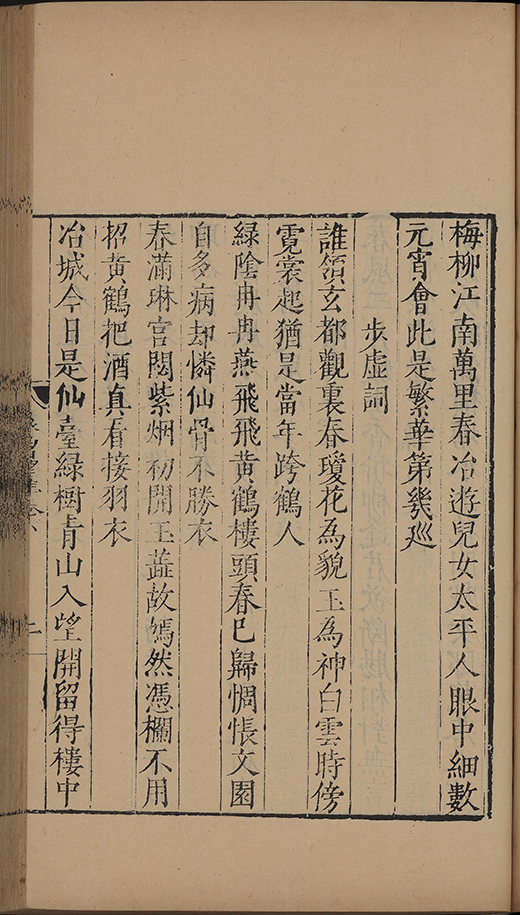 梅柳江南萬里春冶遊兒女太平人眼中細數
元宵會此是繁華第幾巡
步虛詞
誰領玄都觀裏春瓊花為貌玉為神白雲時傍
霓裳起猶是當年跨鶴人
綠陰冉冉燕飛飛黃鶴樓頭春已歸惆悵文園
自多病却憐仙骨不勝衣
春滿琳宮閟紫烟初開玉蘂故嫣然憑欄不用
招黃鶴把酒真看接羽衣
冶城今日是仙臺綠樹青山入望開留得樓中